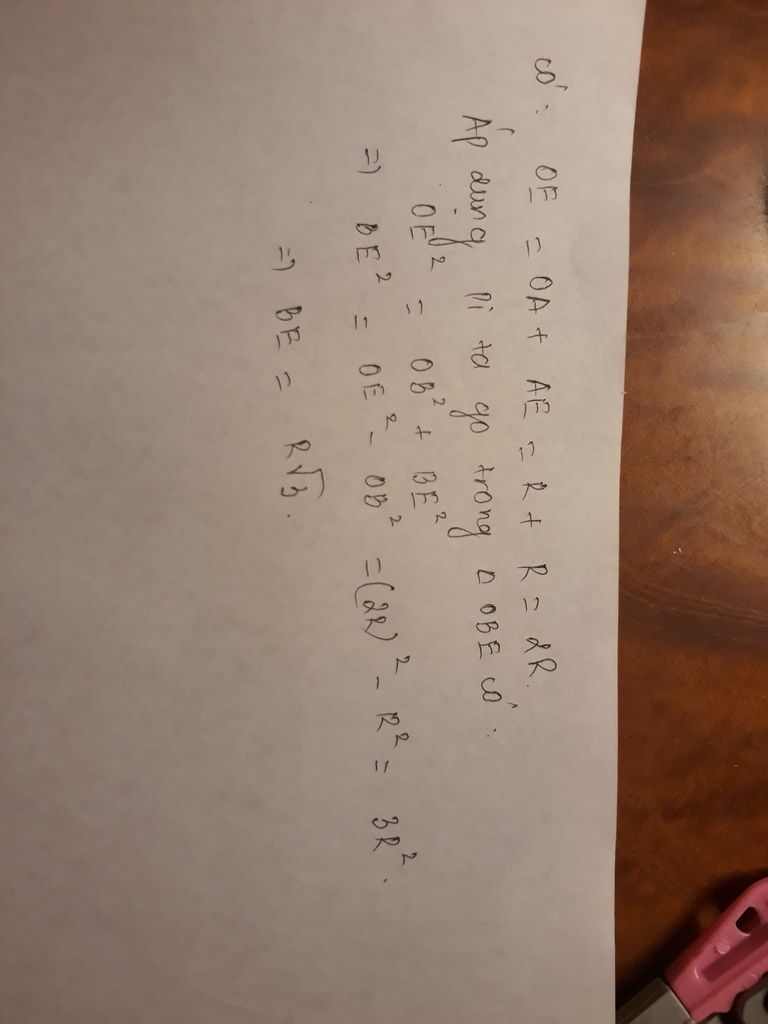 có : OE = OA + AE = R + R = 2R.
Áp dụng Pi ta go trong Δ OBE có :
OE² = OB² + BE²
=) BE² = OE² - OB² = (2R)² - R² = 3R².
=) BE = R√3.